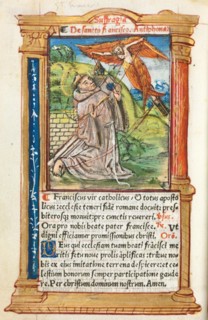 Suffragia
De sancto francisco. Antiphona.
Franciscus vir catholicus ⁊ totus aposto
licus ecclesie teneri fidē romane docuit: pres
biterosq; monuit pre cunctis revereri. Vers.
Ora pro nobis beate pater francisce. Ut
digni efficiamur promissionibus christi. Ora.
Deus qui ecclesiam tuam beati frācisci me
ritis fetu nove prolis āplificas: tribue no
bis ex eius imitatione terrena despicere: et ce
lestium donorum semper participatione gaude
re. Per christum dominum nostrum. Amen.